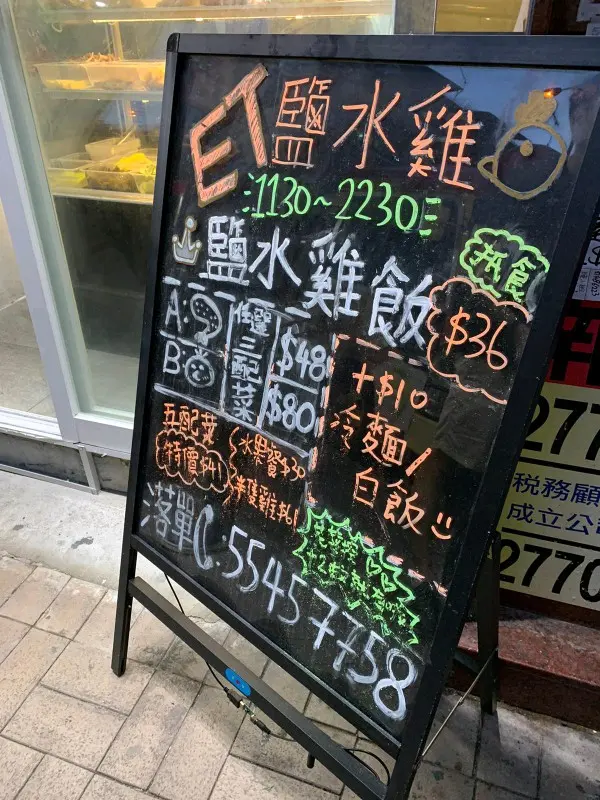 ET 鹽水雞
1130~2230
鹽水雞飯
熱食
$36
A:
B:
任選三配菜
$48
$80
+$10
冷麵/
白飯
五配菜
特價$41
水果餐$30
半隻雞
落單
:55457758
277
税務顧
成立公
2770